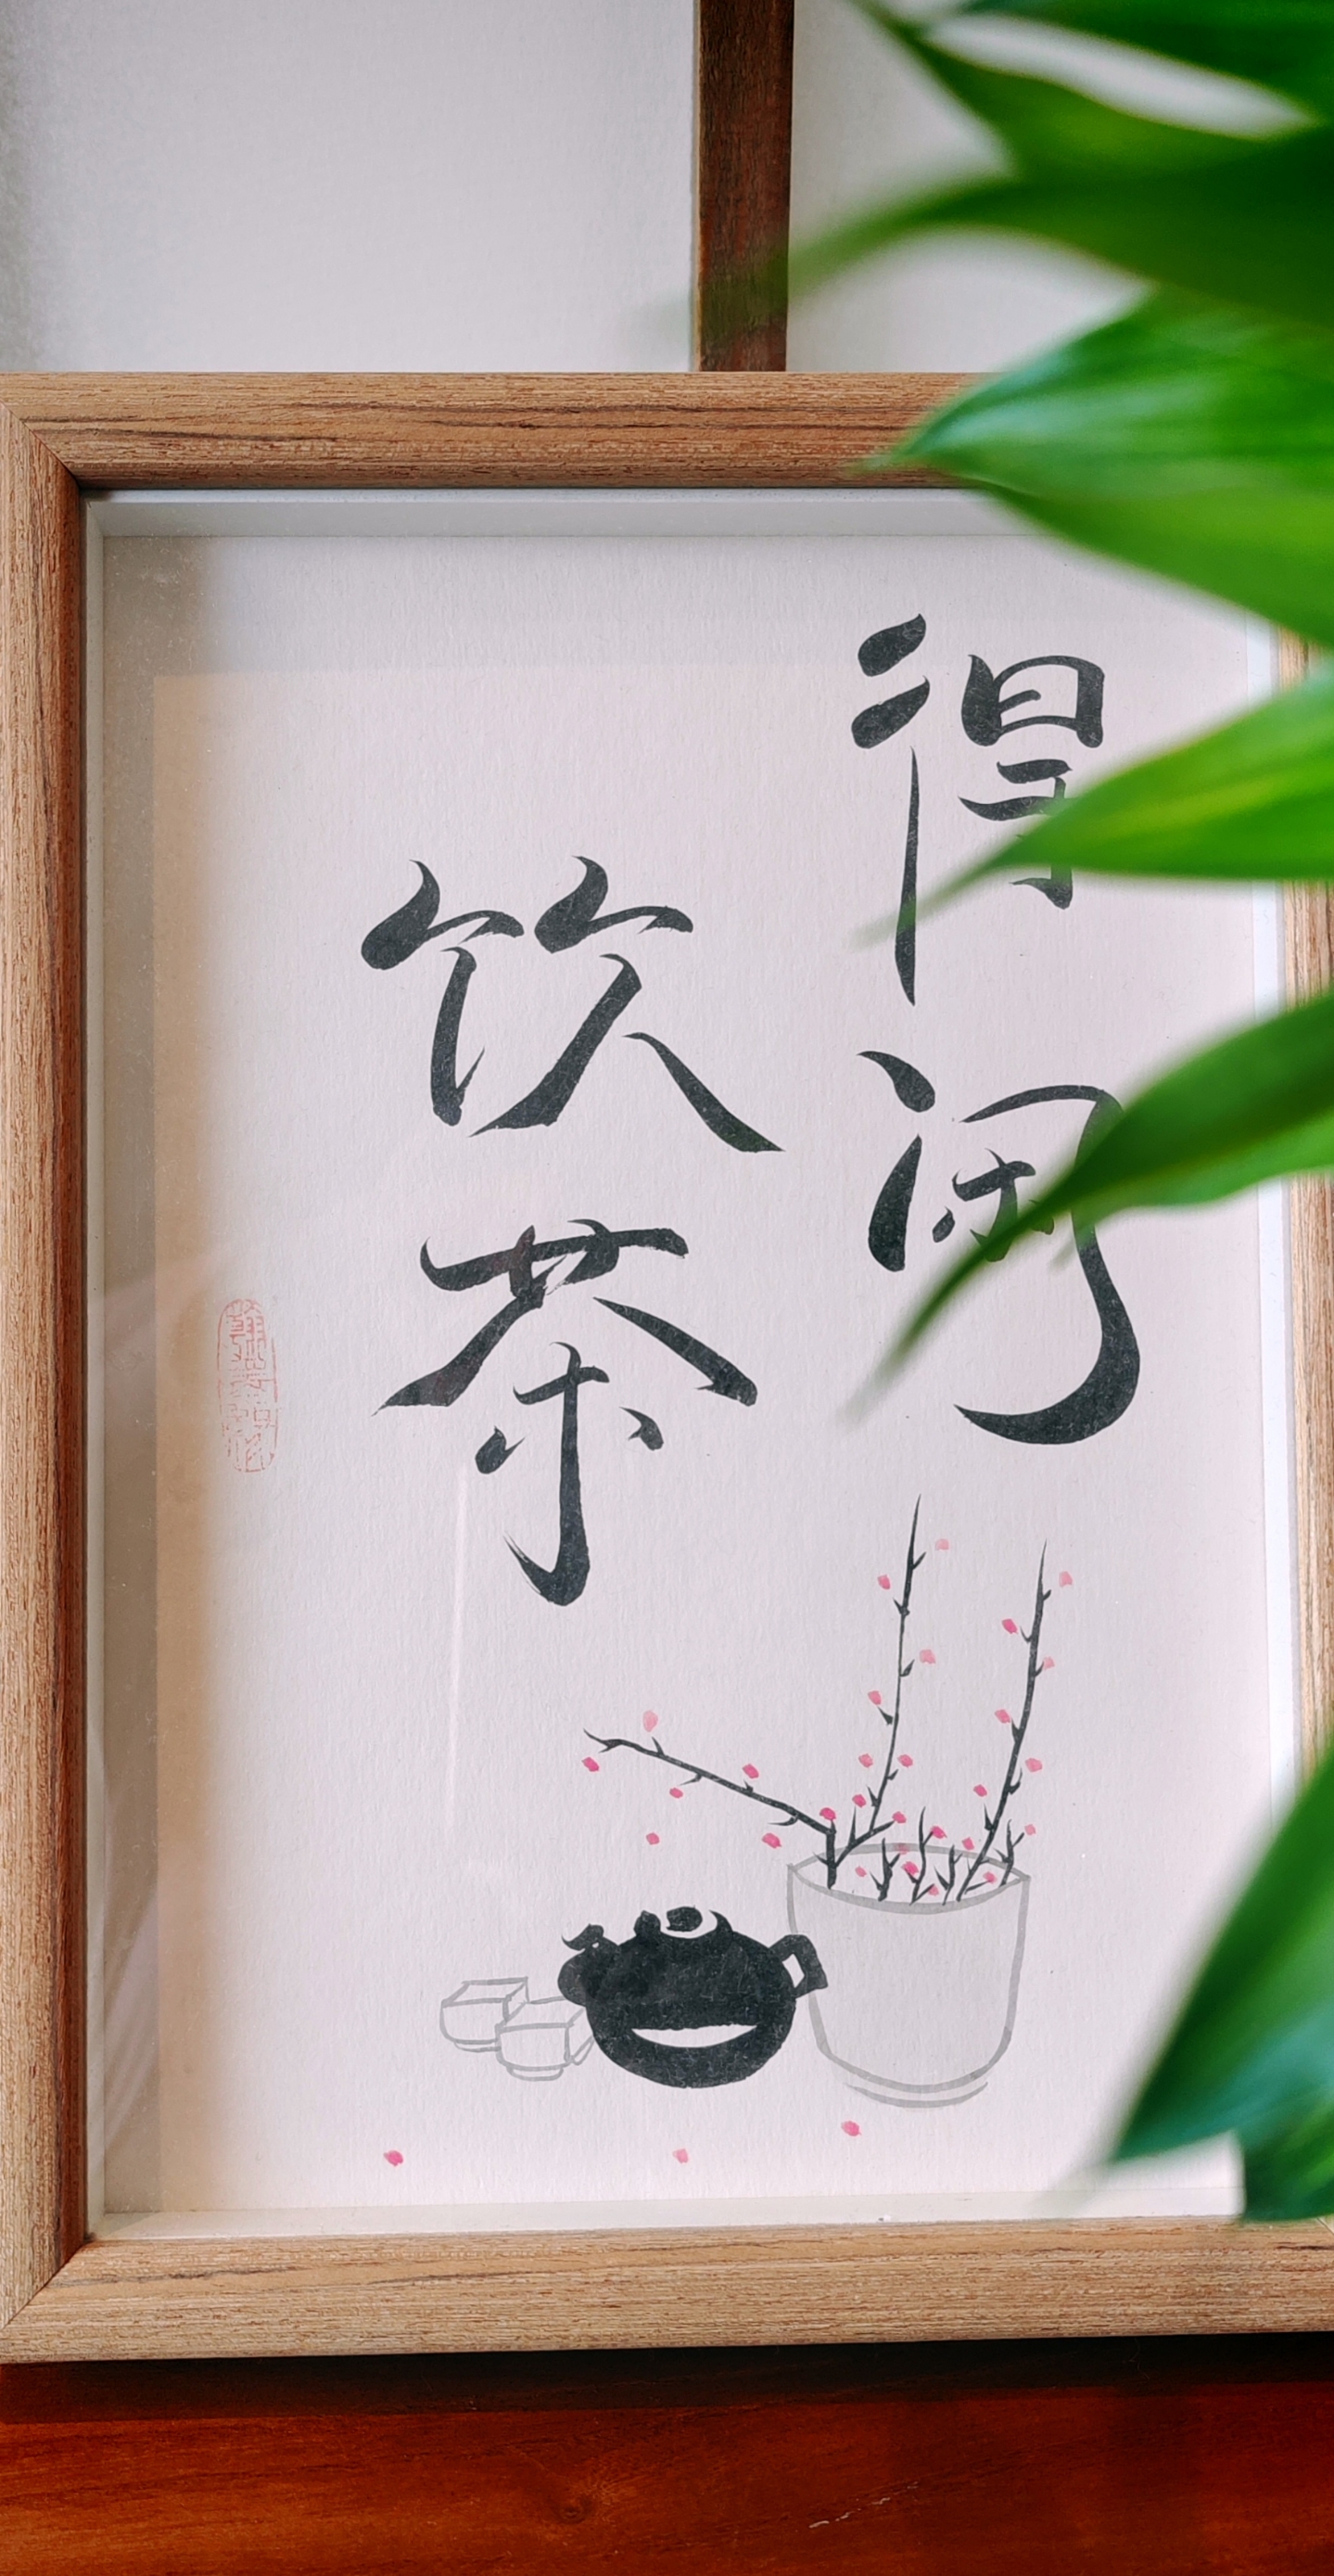 得闲
饮茶